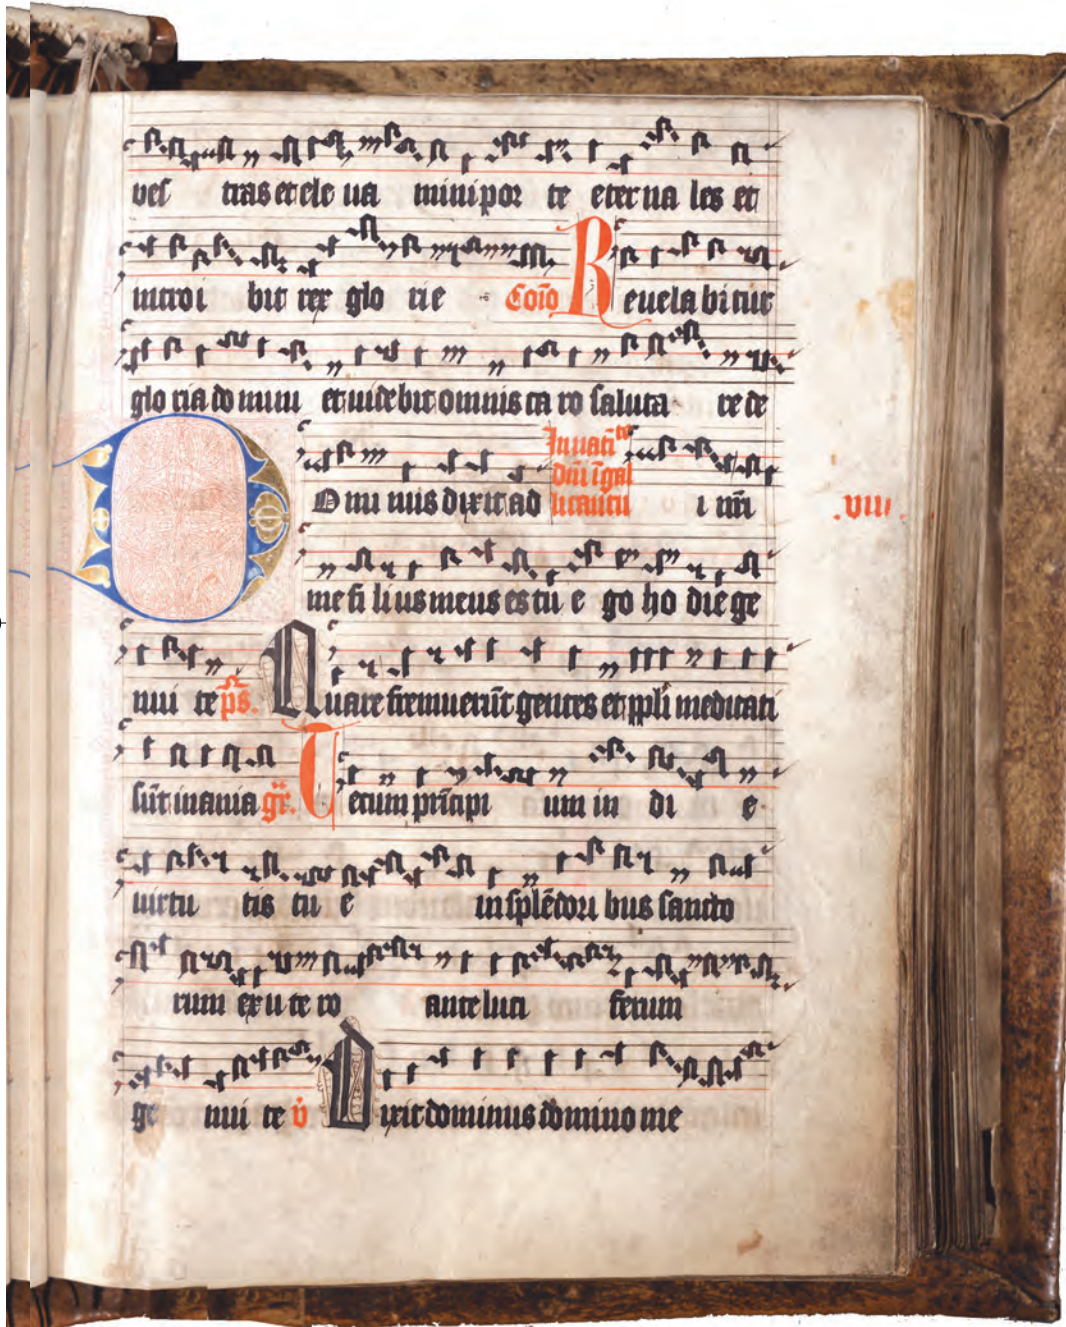 ves tras et ele ua mini por te eter na les et
introi bit rex glo rie Coīo Reuela bitur
glo ria do mini et uidebit omnis ca ro saluta re de
O mi nus dixit ad In nati te dn̄i ī gal licantu i nr̄i
.VIII.
me fi li us meus es tu e go ho die ge
nui te p̄s. Quare fremuerūt gentes et ppli meditati
sūt inania gr̄. Tecum prīcipi um in di e
uirtu tis tu e in splēdori bus sancto
rum ex u te ro ante luci ferum
ge nui te v̇ Dixit dominus domino me